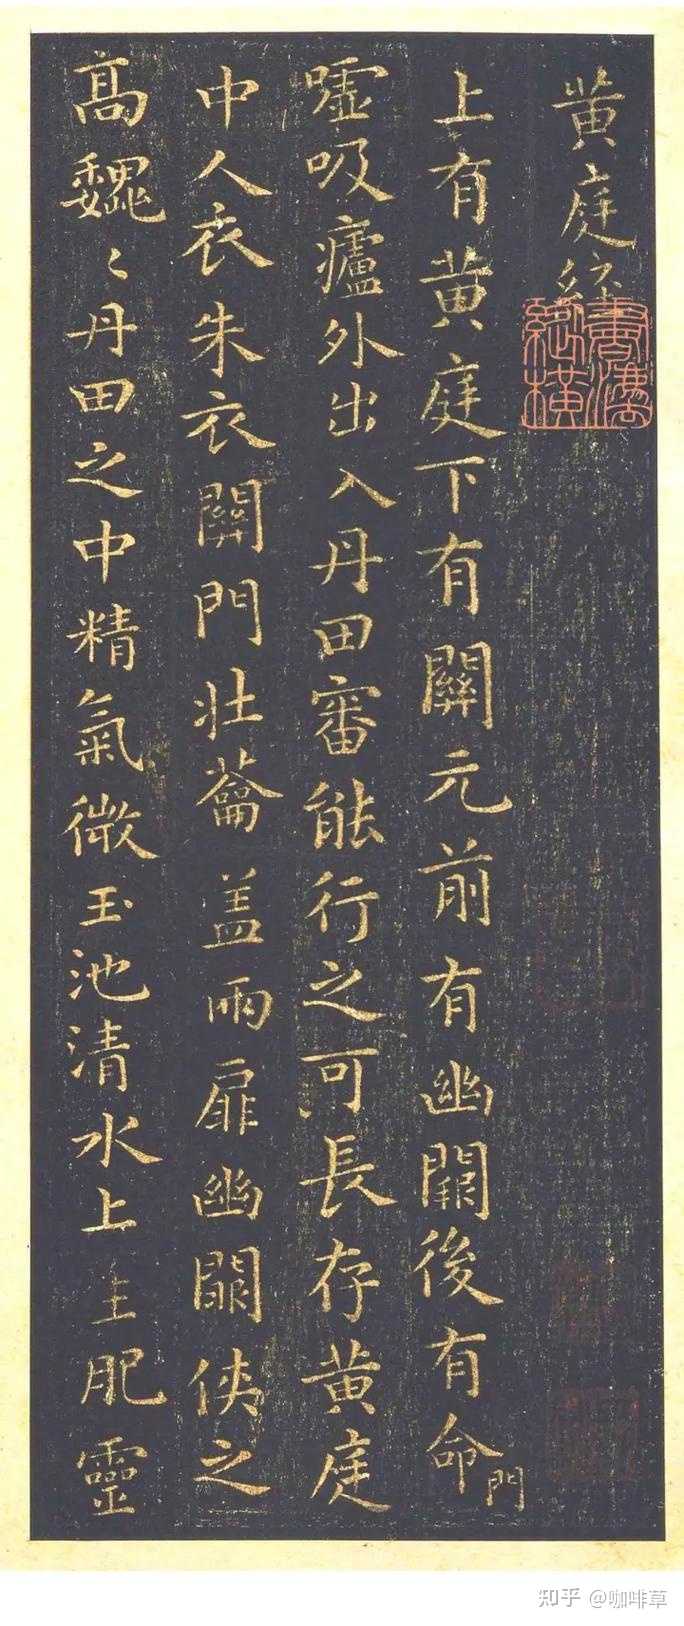 黄庭經
上有黄庭下有關元前有幽闕後有命門
嘘吸廬外出入丹田審能行之可長存黄庭
中人衣朱衣關門壯蘥盖兩扉幽闕侠之
高魏〻丹田之中精氣微玉池清水上生肥靈
知乎 @咖啡草